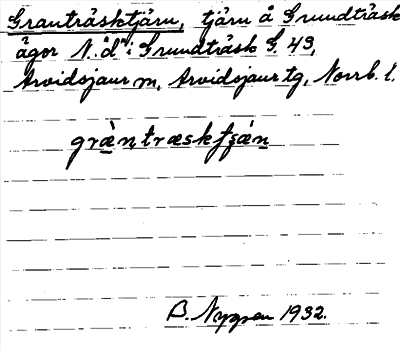 Granträsktjärn, tjärn å Grundträsk
ägor N. d. i Grundträsk G. 43,
Arvidsjaur m, Arvidsjaur tg, Norrb. l.
gràntræskʃǽn
1932.